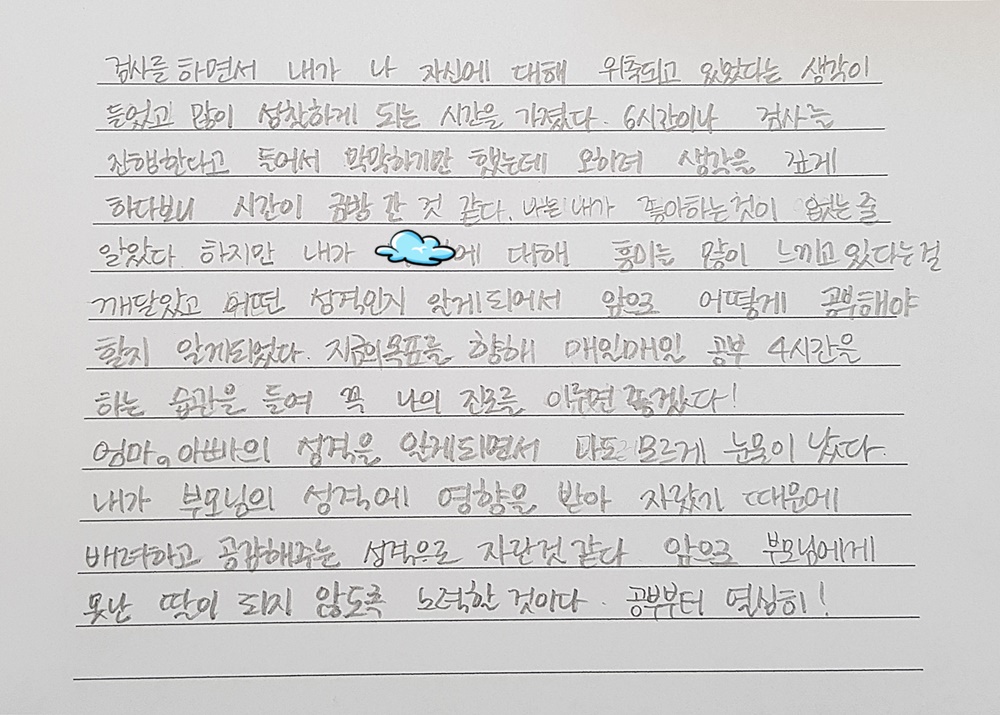 검사를 하면서 내가 나 자신에 대해 위축되고 있었다는 생각이
들었고 많이 성찰하게 되는 시간을 가졌다. 6시간이나 검사를
진행한다고 들어서 막막하기만 했는데 오히려 생각을 깊게
하다보니 시간이 금방 간 것 같다. 나는 내가 좋아하는것이 없는 줄
알았다. 하지만 내가 에 대해 흥미를 많이 느끼고 있다는 걸
깨달았고 어떤 성격인지 알게되어서 앞으로 어떻게 공부해야
할지 알게되었다. 지금의 목표를 향해 매일매일 공부 4시간을
하는 습관을 들여 꼭 나의 진로를 이루면 좋겠다!
엄마, 아빠의 성격을 알게되면서 나도 모르게 눈물이 났다.
내가 부모님의 성격에 영향을 받아 자랐기 때문에
배려하고 공감해주는 성격으로 자란것 같다 앞으로 부모님에게
못난 딸이 되지 않도록 노력할 것이다. 공부부터 열심히!